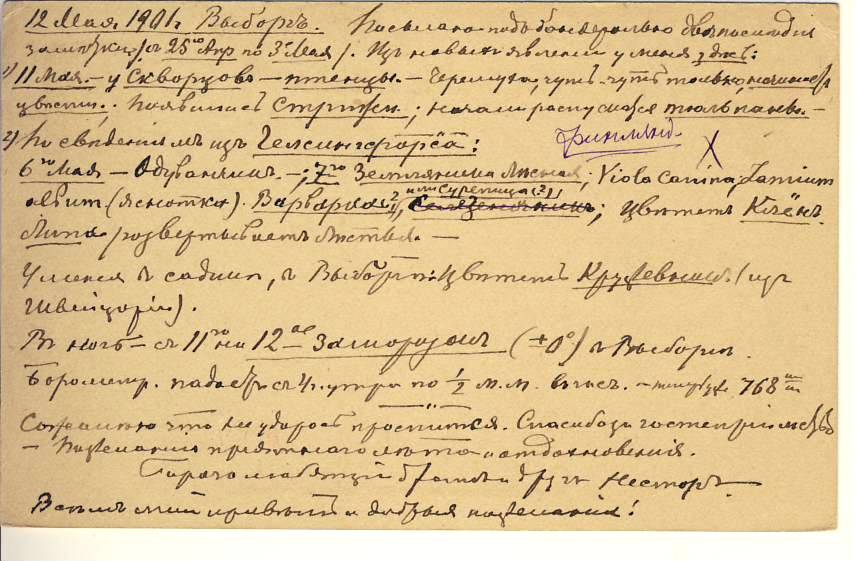 12 Мая 1901 г. Выборгъ. Послано подъ бандеролью
замѣтки /съ 25го Апр по 3 Мая/. Изъ новыхъ явленій у меня здѣсь:
1) 11 Мая – у Скворцовъ – птенцы. – Черемуха, чуть-чуть только, начинаетъ
цвѣсти; появились Стрижи; начали распускаться тюльпаны. –
2) По свѣденіямъ изъ Гельсингфорса: Финлянд.
6го Мая – Одуванчикъ –; 7го Земляника лѣсная; Viola canina, Lamium
album (яснотка). Варварка или Сурепица (?); цвѣтетъ Клёнъ.
Липа развертываетъ листья. –
У меня въ садикѣ, въ Выборгѣ: цвѣтетъ Крыжевникъ. (изъ
Швейцаріи).
Въ ночь – съ 11го на 12ое Заморозокъ (±0°) въ Выборгѣ.
Барометр. падаетъ съ 4 ч. утра по ½ м.м. въ часъ. 768 m/m
Сожалѣю что не удалось проститься. Спасибо за гостепріимство
– Пожеланія пріятнаго лѣта и отдохновенія.
Горячо любящій братъ и другъ Несторъ
Всѣмъ мой привѣтъ и добрыя пожеланія!